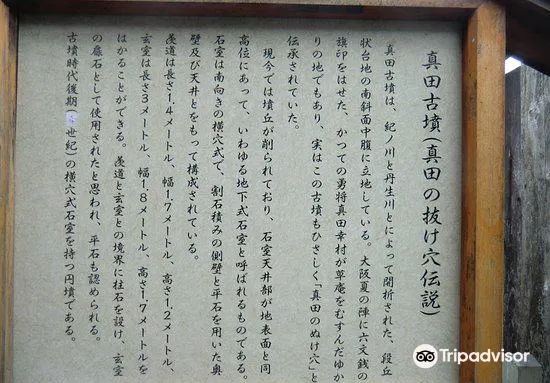 真田古墳(真田の抜け穴伝説)
真田古墳は、紀ノ川と丹生川とによって開析された、段丘
状台地の南斜面中腹に立地している。大阪夏の陣に六文銭の
旗印をはせた、かつての勇将真田幸村が草庵をむすんだゆか
りの地でもあり、実はこの古墳もひさしく「真田のぬけ穴」と
伝承されていた。
現今では墳丘が削られており、石室天井部が地表面と同
高位にあって、いわゆる地下式石室と呼ばれるものである。
石室は南向きの横穴式で、割石積みの側壁と平石を用いた奥
壁及び天井とをもって構成されている。
羨道は長さ1.4メートル、幅1.7メートル、高さ1.2メートル、
玄室は長さ3メートル、幅1.8メートル、高さ1.7メートルを
はかることができる。羨道と玄室との境界に柱石を設け、玄室
の扉石として使用されたと思われ、平石も認められる。
古墳時代後期(世紀)の横穴式石室を持つ円墳である。
Tripadvisor